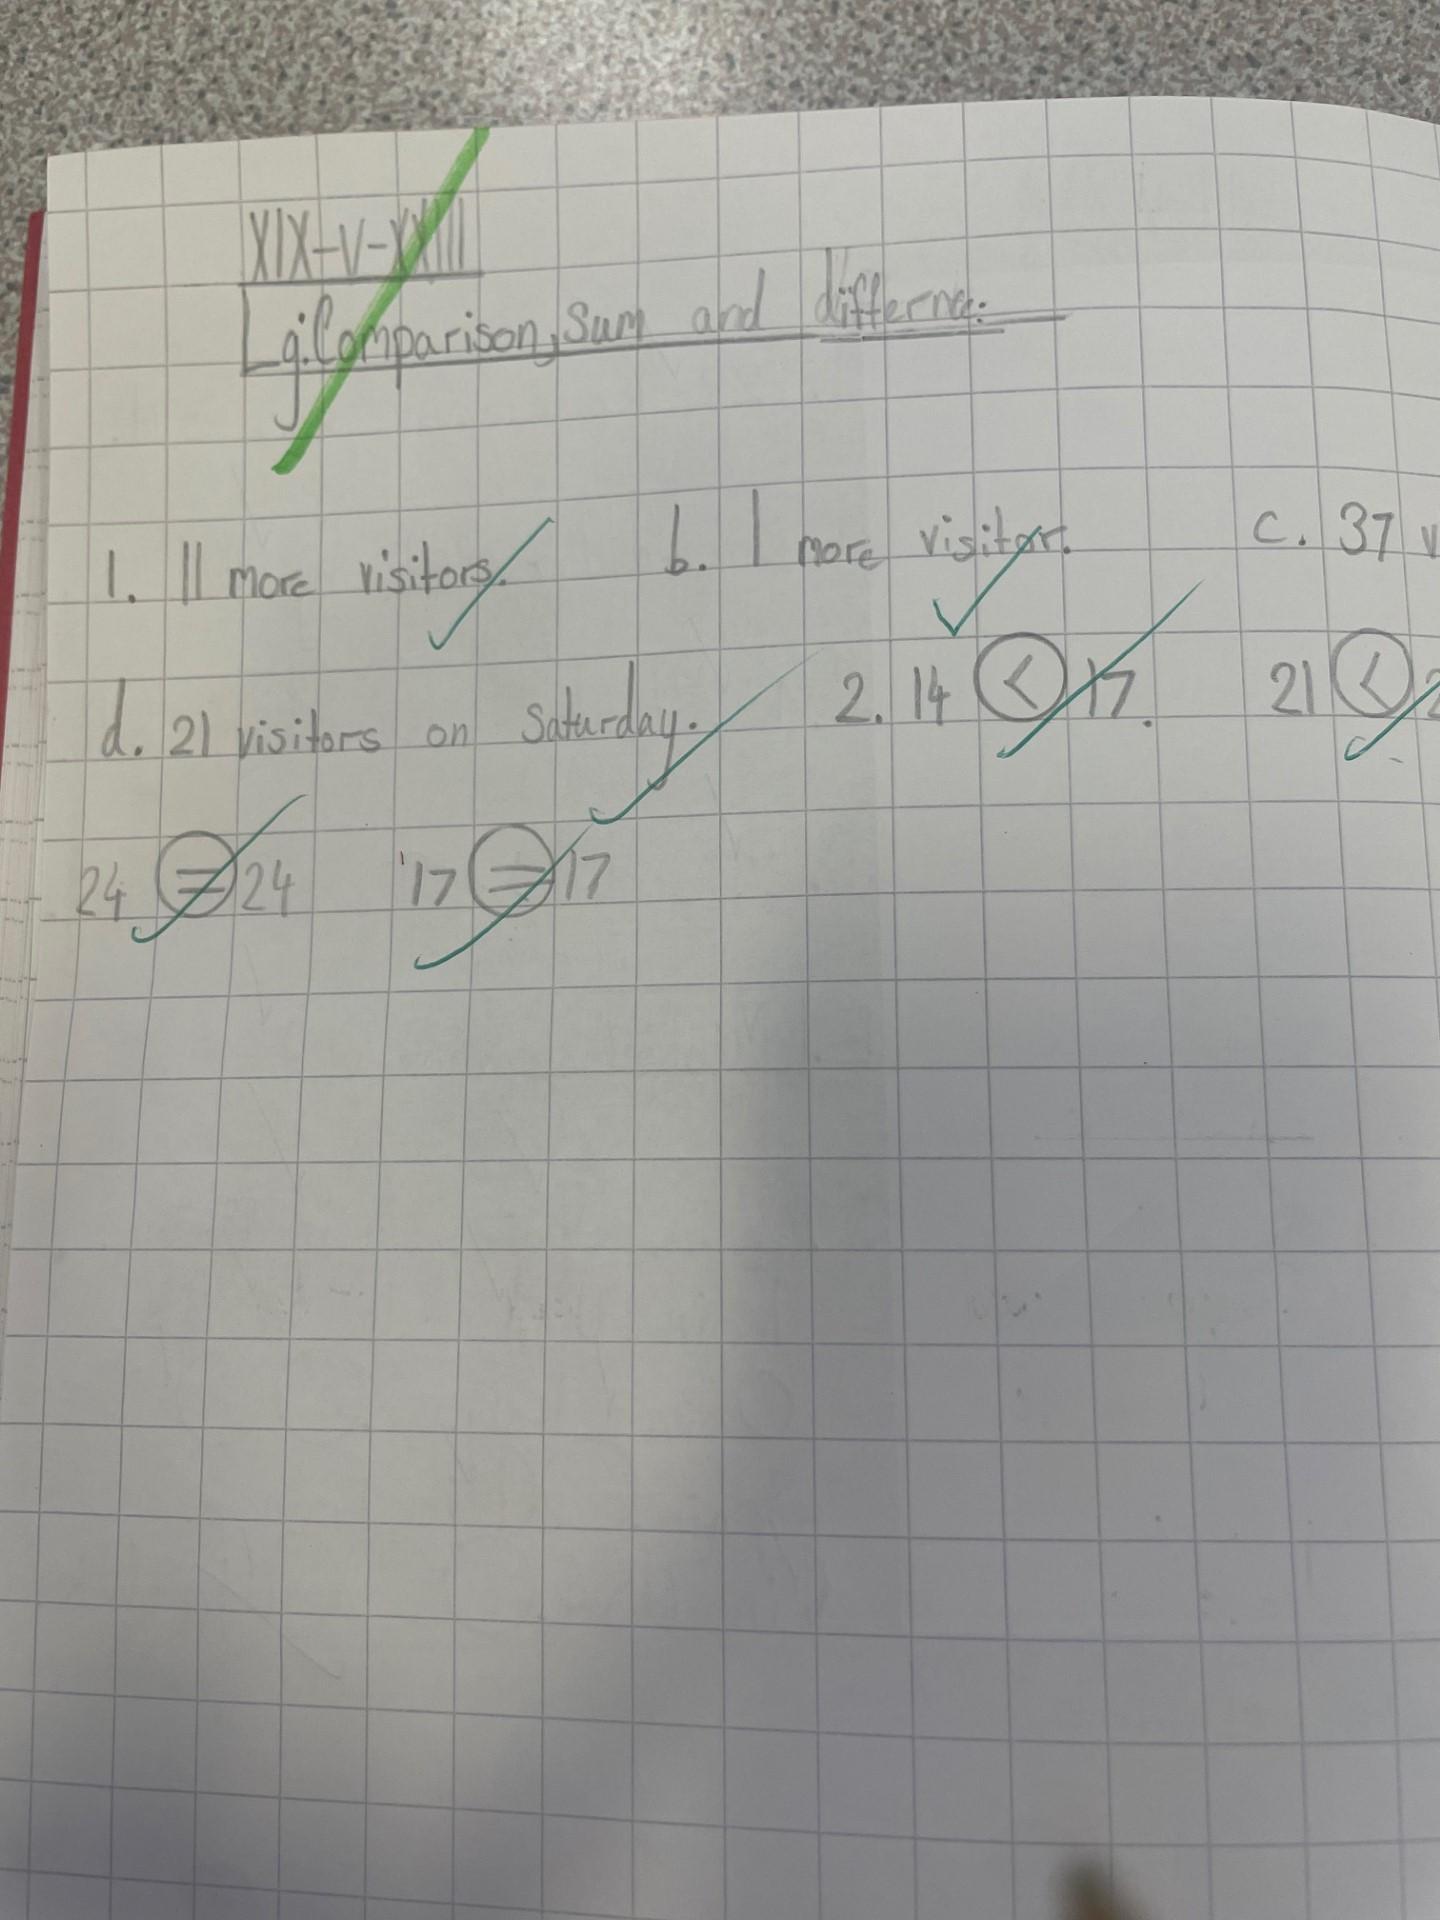 XIX-V-XXIII
Lg: Comparison, sum and differnce:
1. 11 more visitors. b. 1 more visitor. c. 37 v
d. 21 visitors on Saturday. 2. 14 < 17. 21 < 2
24 = 24 17 = 17